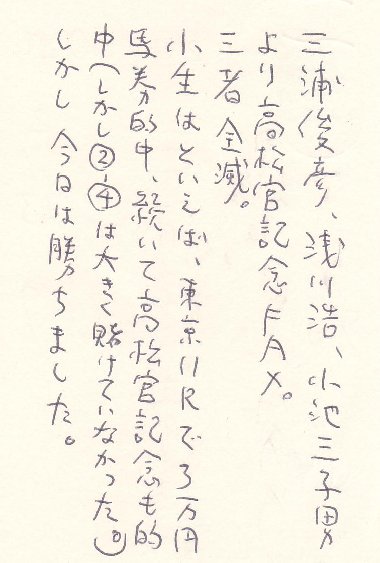 三浦俊彦、浅川浩、小池三子男
より高松宮記念FAX。
三者全滅。
小生はといえば、東京11Rで3万円
馬券的中、続いて高松宮記念も的
中(しかし②-④は大きく賭けていなかった。)
しかし今日は勝ちました。